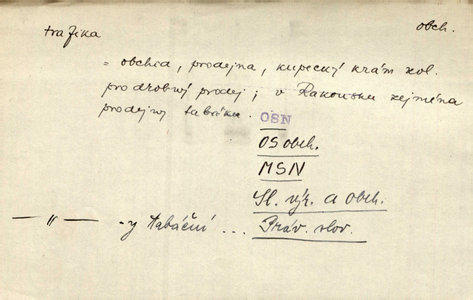 trafika obch.
= obchod, prodejna, kupecký krám zvl.
pro drobný prodej; v Rakousku zejména
prodejny tabáku. OSN
OS obch.
MSN
Sl. výr. a obch.
— " — -y tabáční ... Práv. slov.